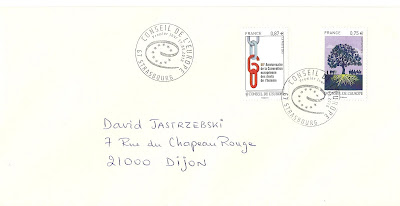 CONSEIL DE L'EUROPE
67 STRASBOURG
FRANCE 0,87 €
60e Anniversaire
de la Convention
européenne
des droits
de l'homme
CONSEIL DE L'EUROPE
FRANCE 0,75 €
CONSEIL DE L'EUROPE
CONSEIL DE L'EUROPE
67 STRASBOURG
David JASTRZEBSKI
7 Rue du Chapeau Rouge
21000 Dijon